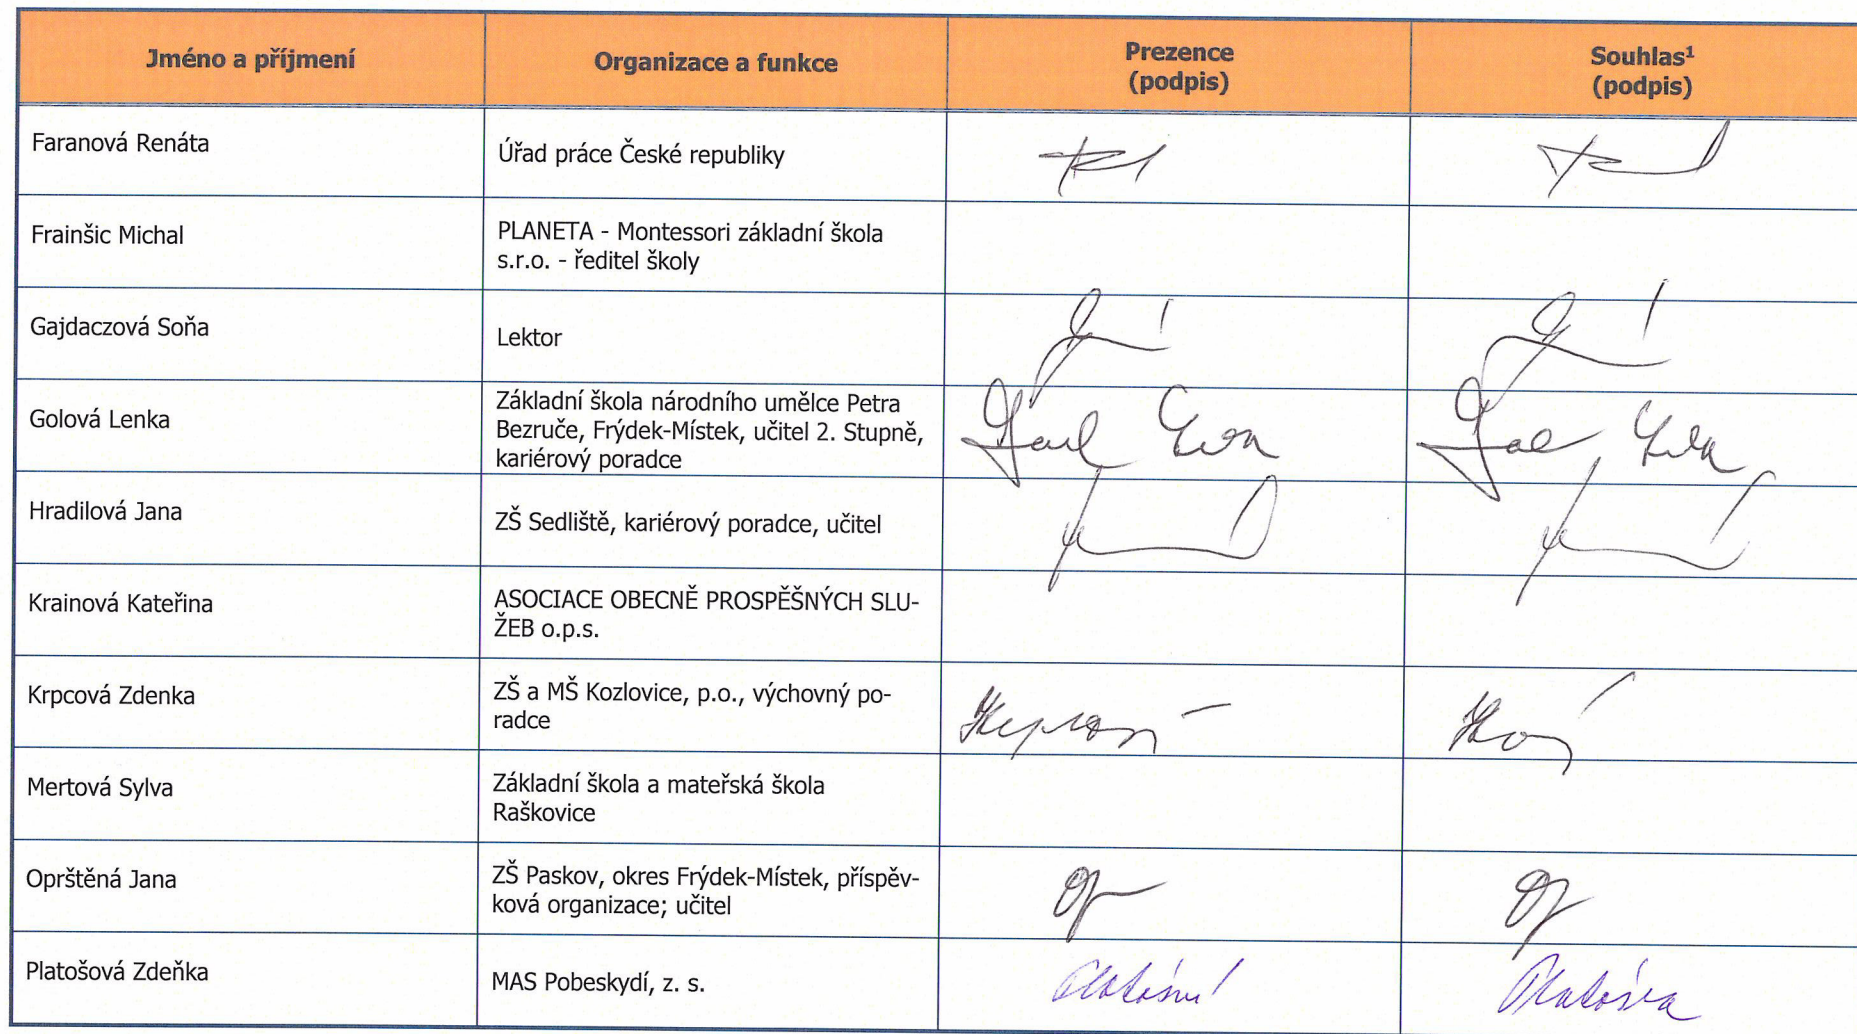 Jméno a příjmení
Organizace a funkce
Prezence
(podpis)
Souhlas¹
(podpis)
Faranová Renáta
Úřad práce České republiky
Frainšic Michal
PLANETA - Montessori základní škola
s.r.o. - ředitel školy
Gajdaczová Soňa
Lektor
Golová Lenka
Základní škola národního umělce Petra
Bezruče, Frýdek-Místek, učitel 2. Stupně,
kariérový poradce
Hradilová Jana
ZŠ Sedliště, kariérový poradce, učitel
Krainová Kateřina
ASOCIACE OBECNĚ PROSPĚŠNÝCH SLU-
ŽEB o.p.s.
Krpcová Zdenka
ZŠ a MŠ Kozlovice, p.o., výchovný po-
radce
Mertová Sylva
Základní škola a mateřská škola
Raškovice
Oprštěná Jana
ZŠ Paskov, okres Frýdek-Místek, příspěv-
ková organizace; učitel
Platošová Zdeňka
MAS Pobeskydí, z. s.